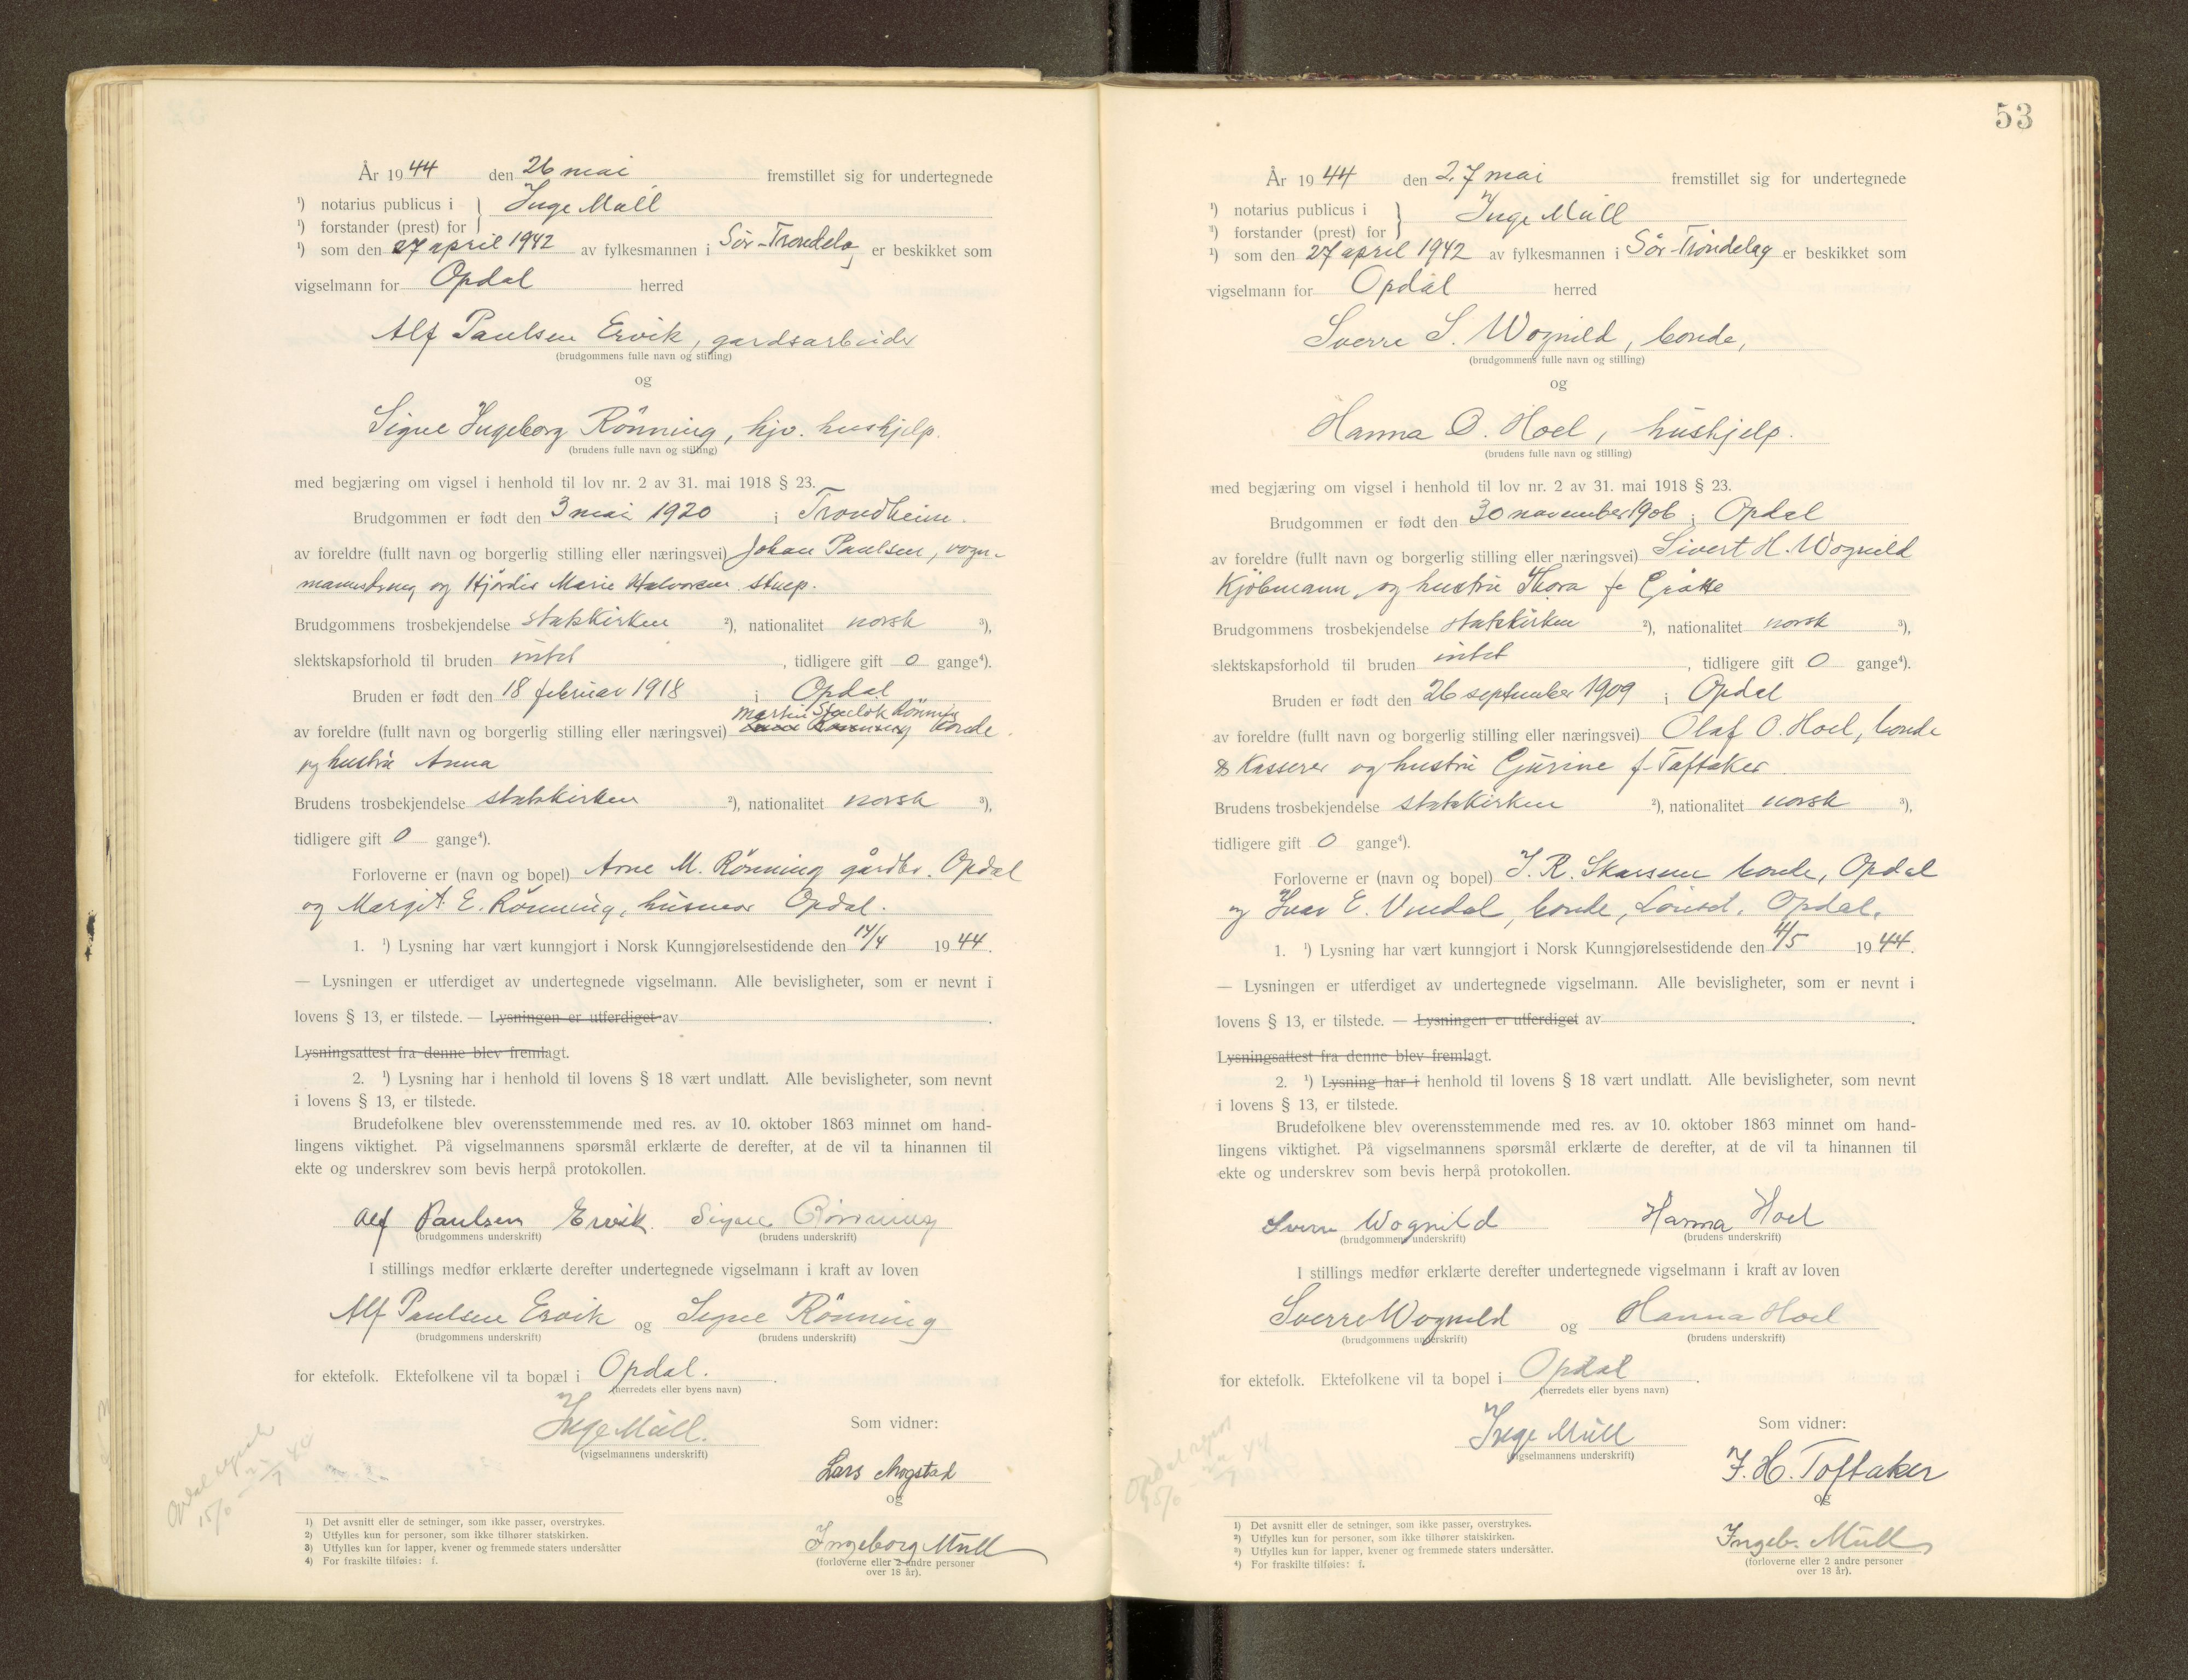 År 1944 den 26 mai fremstillet sig for undertegnede
¹) notarius publicus i } Inge Müll
¹) forstander (prest) for
¹) som den 27 april 1942 av fylkesmannen i Sör-Tröndelag er beskikket som
vigselmann for Opdal herred
Alf Paulsen Ervik, gardsarbeider
(brudgommens fulle navn og stilling)
og
Signe Ingeborg Rönning, hjv. hushjelp.
(brudens fulle navn og stilling)
med begjæring om vigsel i henhold til lov nr. 2 av 31. mai 1918 § 23.
Brudgommen er født den 3 mai 1920 i Trondheim.
av foreldre (fullt navn og borgerlig stilling eller næringsvei) Johan Paulsen, vogn-
og Hjördis Marie Halvorsen
Brudgommens trosbekjendelse statskirken ²), nationalitet norsk ³),
slektskapsforhold til bruden intet, tidligere gift 0 gange⁴).
Bruden er født den 18 februar 1918 i Opdal
Martin Rönning
av foreldre (fullt navn og borgerlig stilling eller næringsvei) bonde.
og hustru Anna
Brudens trosbekjendelse statskirken ²), nationalitet norsk ³),
tidligere gift 0 gange⁴).
Forloverne er (navn og bopel) Arne M. Rönning gårdbr. Opdal
og Margit E. Rönning, husmor Opdal.
1. ¹) Lysning har vært kunngjort i Norsk Kunngjørelsestidende den 14/4 1944.
— Lysningen er utferdiget av undertegnede vigselmann. Alle bevisligheter, som er nevnt i
lovens § 13, er tilstede. — Lysningen er utferdiget av
Lysningsattest fra denne blev fremlagt.
2. ¹) Lysning har i henhold til lovens § 18 vært undlatt. Alle bevisligheter, som nevnt
i lovens § 13, er tilstede.
Brudefolkene blev overensstemmende med res. av 10. oktober 1863 minnet om hand-
lingens viktighet. På vigselmannens spørsmål erklærte de derefter, at de vil ta hinannen til
ekte og underskrev som bevis herpå protokollen.
Alf Paulsen Ervik. Signe Rönning
(brudgommens underskrift) (brudens underskrift)
I stillings medfør erklærte derefter undertegnede vigselmann i kraft av loven
Alf Paulsen Ervik og Signe Rönning
(brudgommens underskrift) (brudens underskrift)
for ektefolk. Ektefolkene vil ta bopæl i Opdal.
(herredets eller byens navn)
Inge Müll. Som vidner:
(vigselmannens underskrift)
Lars Mogstad
og
Ingeborg Müll
(forloverne eller 2 andre personer
over 18 år).
1) Det avsnitt eller de setninger, som ikke passer, overstrykes.
2) Utfylles kun for personer, som ikke tilhører statskirken.
3) Utfylles kun for lapper, kvener og fremmede staters undersåtter
4) For fraskilte tilføies: f.
53
År 1944 den 27 mai fremstillet sig for undertegnede
¹) notarius publicus i } Inge Müll
¹) forstander (prest) for
¹) som den 27 april 1942 av fylkesmannen i Sör-Tröndelag er beskikket som
vigselmann for Opdal herred
Sverre S. Wognild, bonde,
(brudgommens fulle navn og stilling)
og
Hanna O. Hoel, hushjelp.
(brudens fulle navn og stilling)
med begjæring om vigsel i henhold til lov nr. 2 av 31. mai 1918 § 23.
Brudgommen er født den 30 november 1906 i Opdal
av foreldre (fullt navn og borgerlig stilling eller næringsvei) Sivert H. Wognild
Kjöbmann, og hustru Thora f.
Brudgommens trosbekjendelse statskirken ²), nationalitet norsk ³),
slektskapsforhold til bruden intet, tidligere gift 0 gange⁴).
Bruden er født den 26 september 1909 i Opdal
av foreldre (fullt navn og borgerlig stilling eller næringsvei) Olaf O. Hoel, bonde
& Kasserer og hustru Gjurine f. Toftaker
Brudens trosbekjendelse statskirken ²), nationalitet norsk ³),
tidligere gift 0 gange⁴).
Forloverne er (navn og bopel) J. R. bonde, Opdal
og Ivar E. Vindal, bonde, Lönset, Opdal.
1. ¹) Lysning har vært kunngjort i Norsk Kunngjørelsestidende den 4/5 1944.
— Lysningen er utferdiget av undertegnede vigselmann. Alle bevisligheter, som er nevnt i
lovens § 13, er tilstede. — Lysningen er utferdiget av
Lysningsattest fra denne blev fremlagt.
2. ¹) Lysning har i henhold til lovens § 18 vært undlatt. Alle bevisligheter, som nevnt
i lovens § 13, er tilstede.
Brudefolkene blev overensstemmende med res. av 10. oktober 1863 minnet om hand-
lingens viktighet. På vigselmannens spørsmål erklærte de derefter, at de vil ta hinannen til
ekte og underskrev som bevis herpå protokollen.
Sverre Wognild Hanna Hoel
(brudgommens underskrift) (brudens underskrift)
I stillings medfør erklærte derefter undertegnede vigselmann i kraft av loven
Sverre Wognild og Hanna Hoel
(brudgommens underskrift) (brudens underskrift)
for ektefolk. Ektefolkene vil ta bopel i Opdal
(herredets eller byens navn)
Inge Müll Som vidner:
(vigselmannens underskrift)
F. H. Toftaker
og
Ingeb. Müll
(forloverne eller 2 andre personer
over 18 år).
1) Det avsnitt eller de setninger, som ikke passer, overstrykes.
2) Utfylles kun for personer, som ikke tilhører statskirken.
3) Utfylles kun for lapper, kvener og fremmede staters undersåtter.
4) For fraskilte tilføies: f.